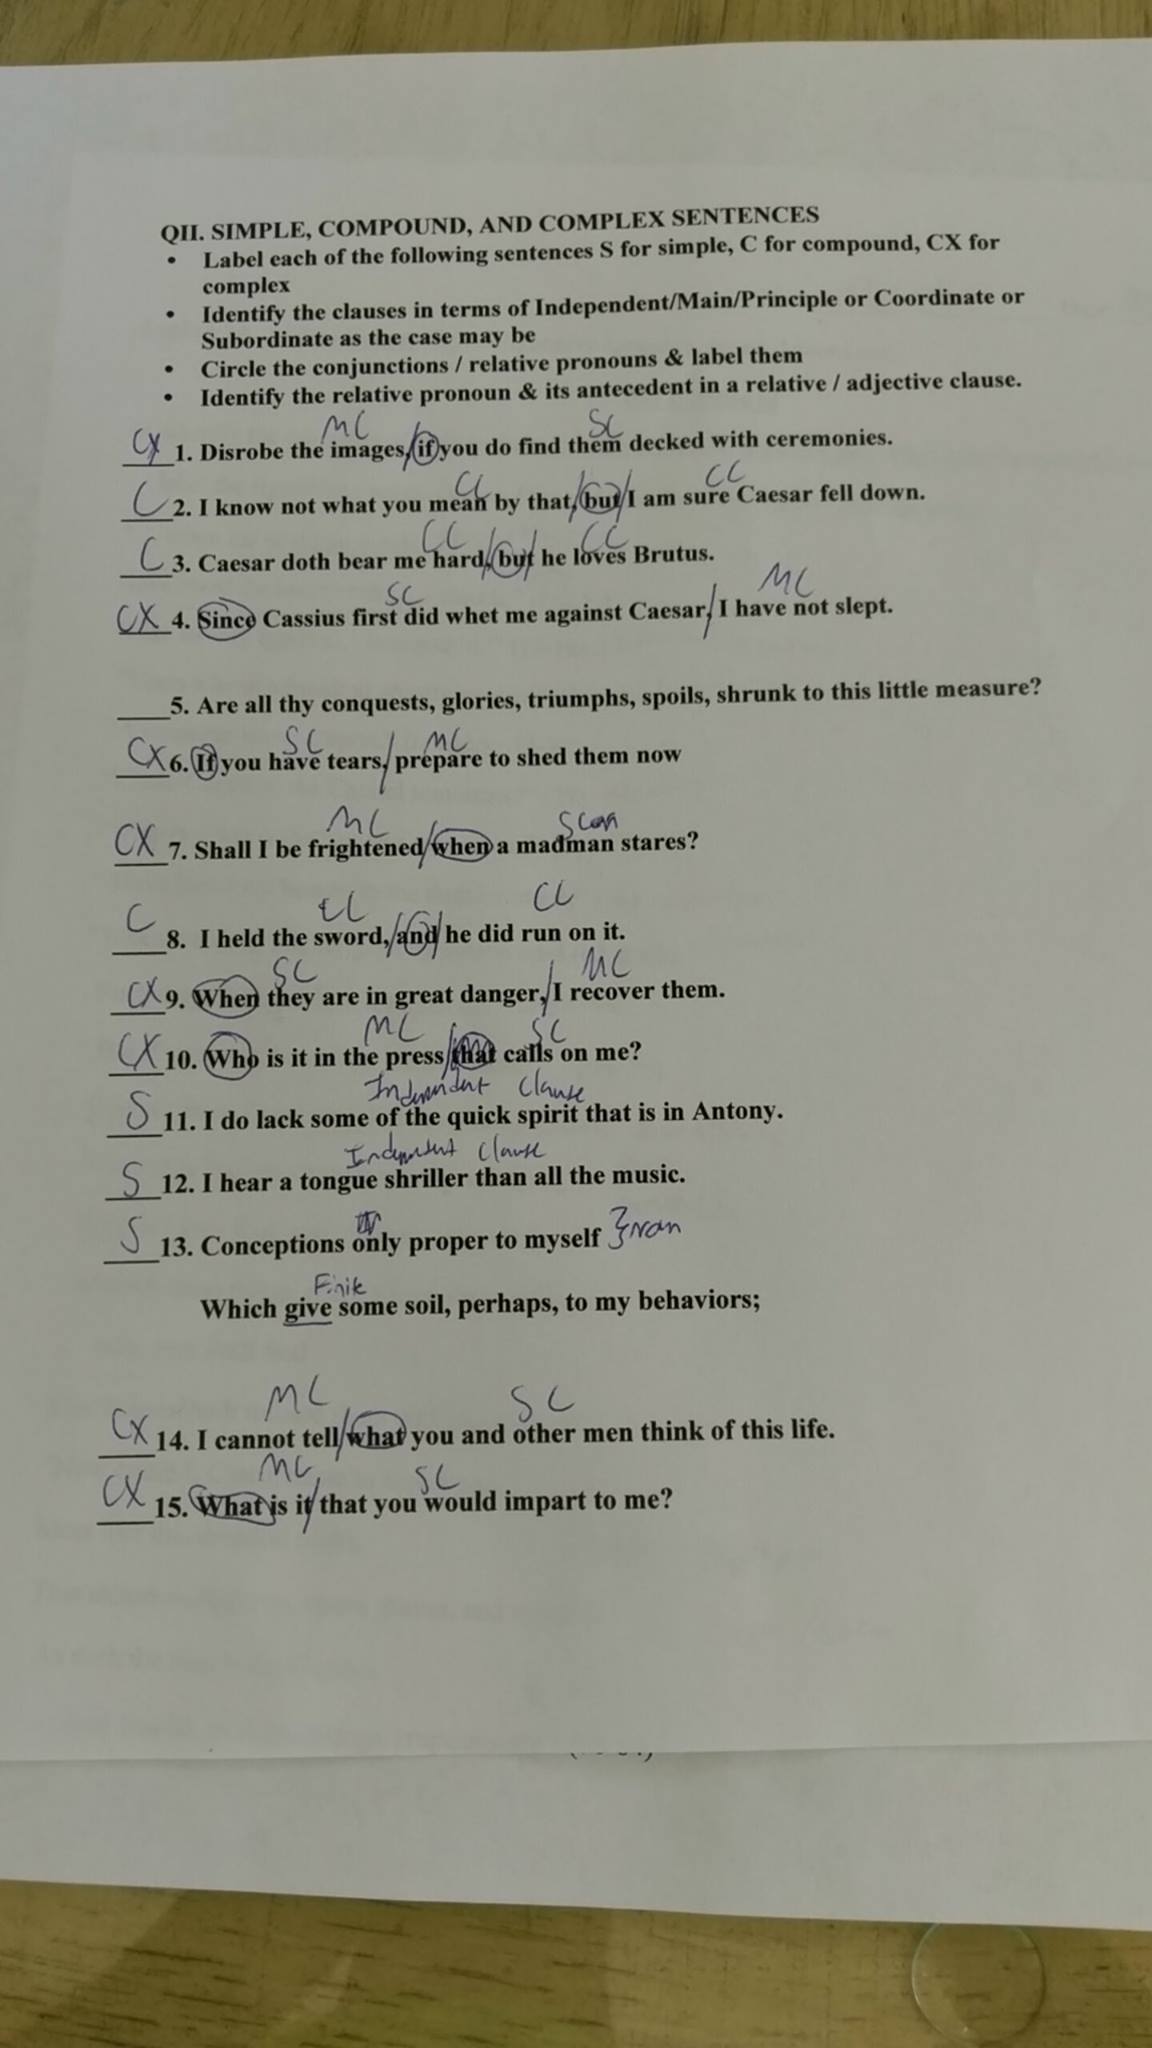 QII. SIMPLE, COMPOUND, AND COMPLEX SENTENCES
• Label each of the following sentences S for simple, C for compound, CX for
complex
• Identify the clauses in terms of Independent/Main/Principle or Coordinate or
Subordinate as the case may be
• Circle the conjunctions / relative pronouns & label them
• Identify the relative pronoun & its antecedent in a relative / adjective clause.
MC SC
CX 1. Disrobe the images, if you do find them decked with ceremonies.
CC CC
C 2. I know not what you mean by that, but I am sure Caesar fell down.
CC CC
C 3. Caesar doth bear me hard, but he loves Brutus.
SC MC
CX 4. Since Cassius first did whet me against Caesar, I have not slept.
5. Are all thy conquests, glories, triumphs, spoils, shrunk to this little measure?
SC MC
CX 6. If you have tears, prepare to shed them now
MC
CX 7. Shall I be frightened when a madman stares?
CC CC
C 8. I held the sword, and he did run on it.
SC MC
CX 9. When they are in great danger, I recover them.
MC SC
CX 10. Who is it in the press that calls on me?
Independent Clause
S 11. I do lack some of the quick spirit that is in Antony.
Independent Clause
S 12. I hear a tongue shriller than all the music.
S 13. Conceptions only proper to myself } non
Finite
Which give some soil, perhaps, to my behaviors;
MC SC
CX 14. I cannot tell what you and other men think of this life.
MC SC
CX 15. What is it that you would impart to me?